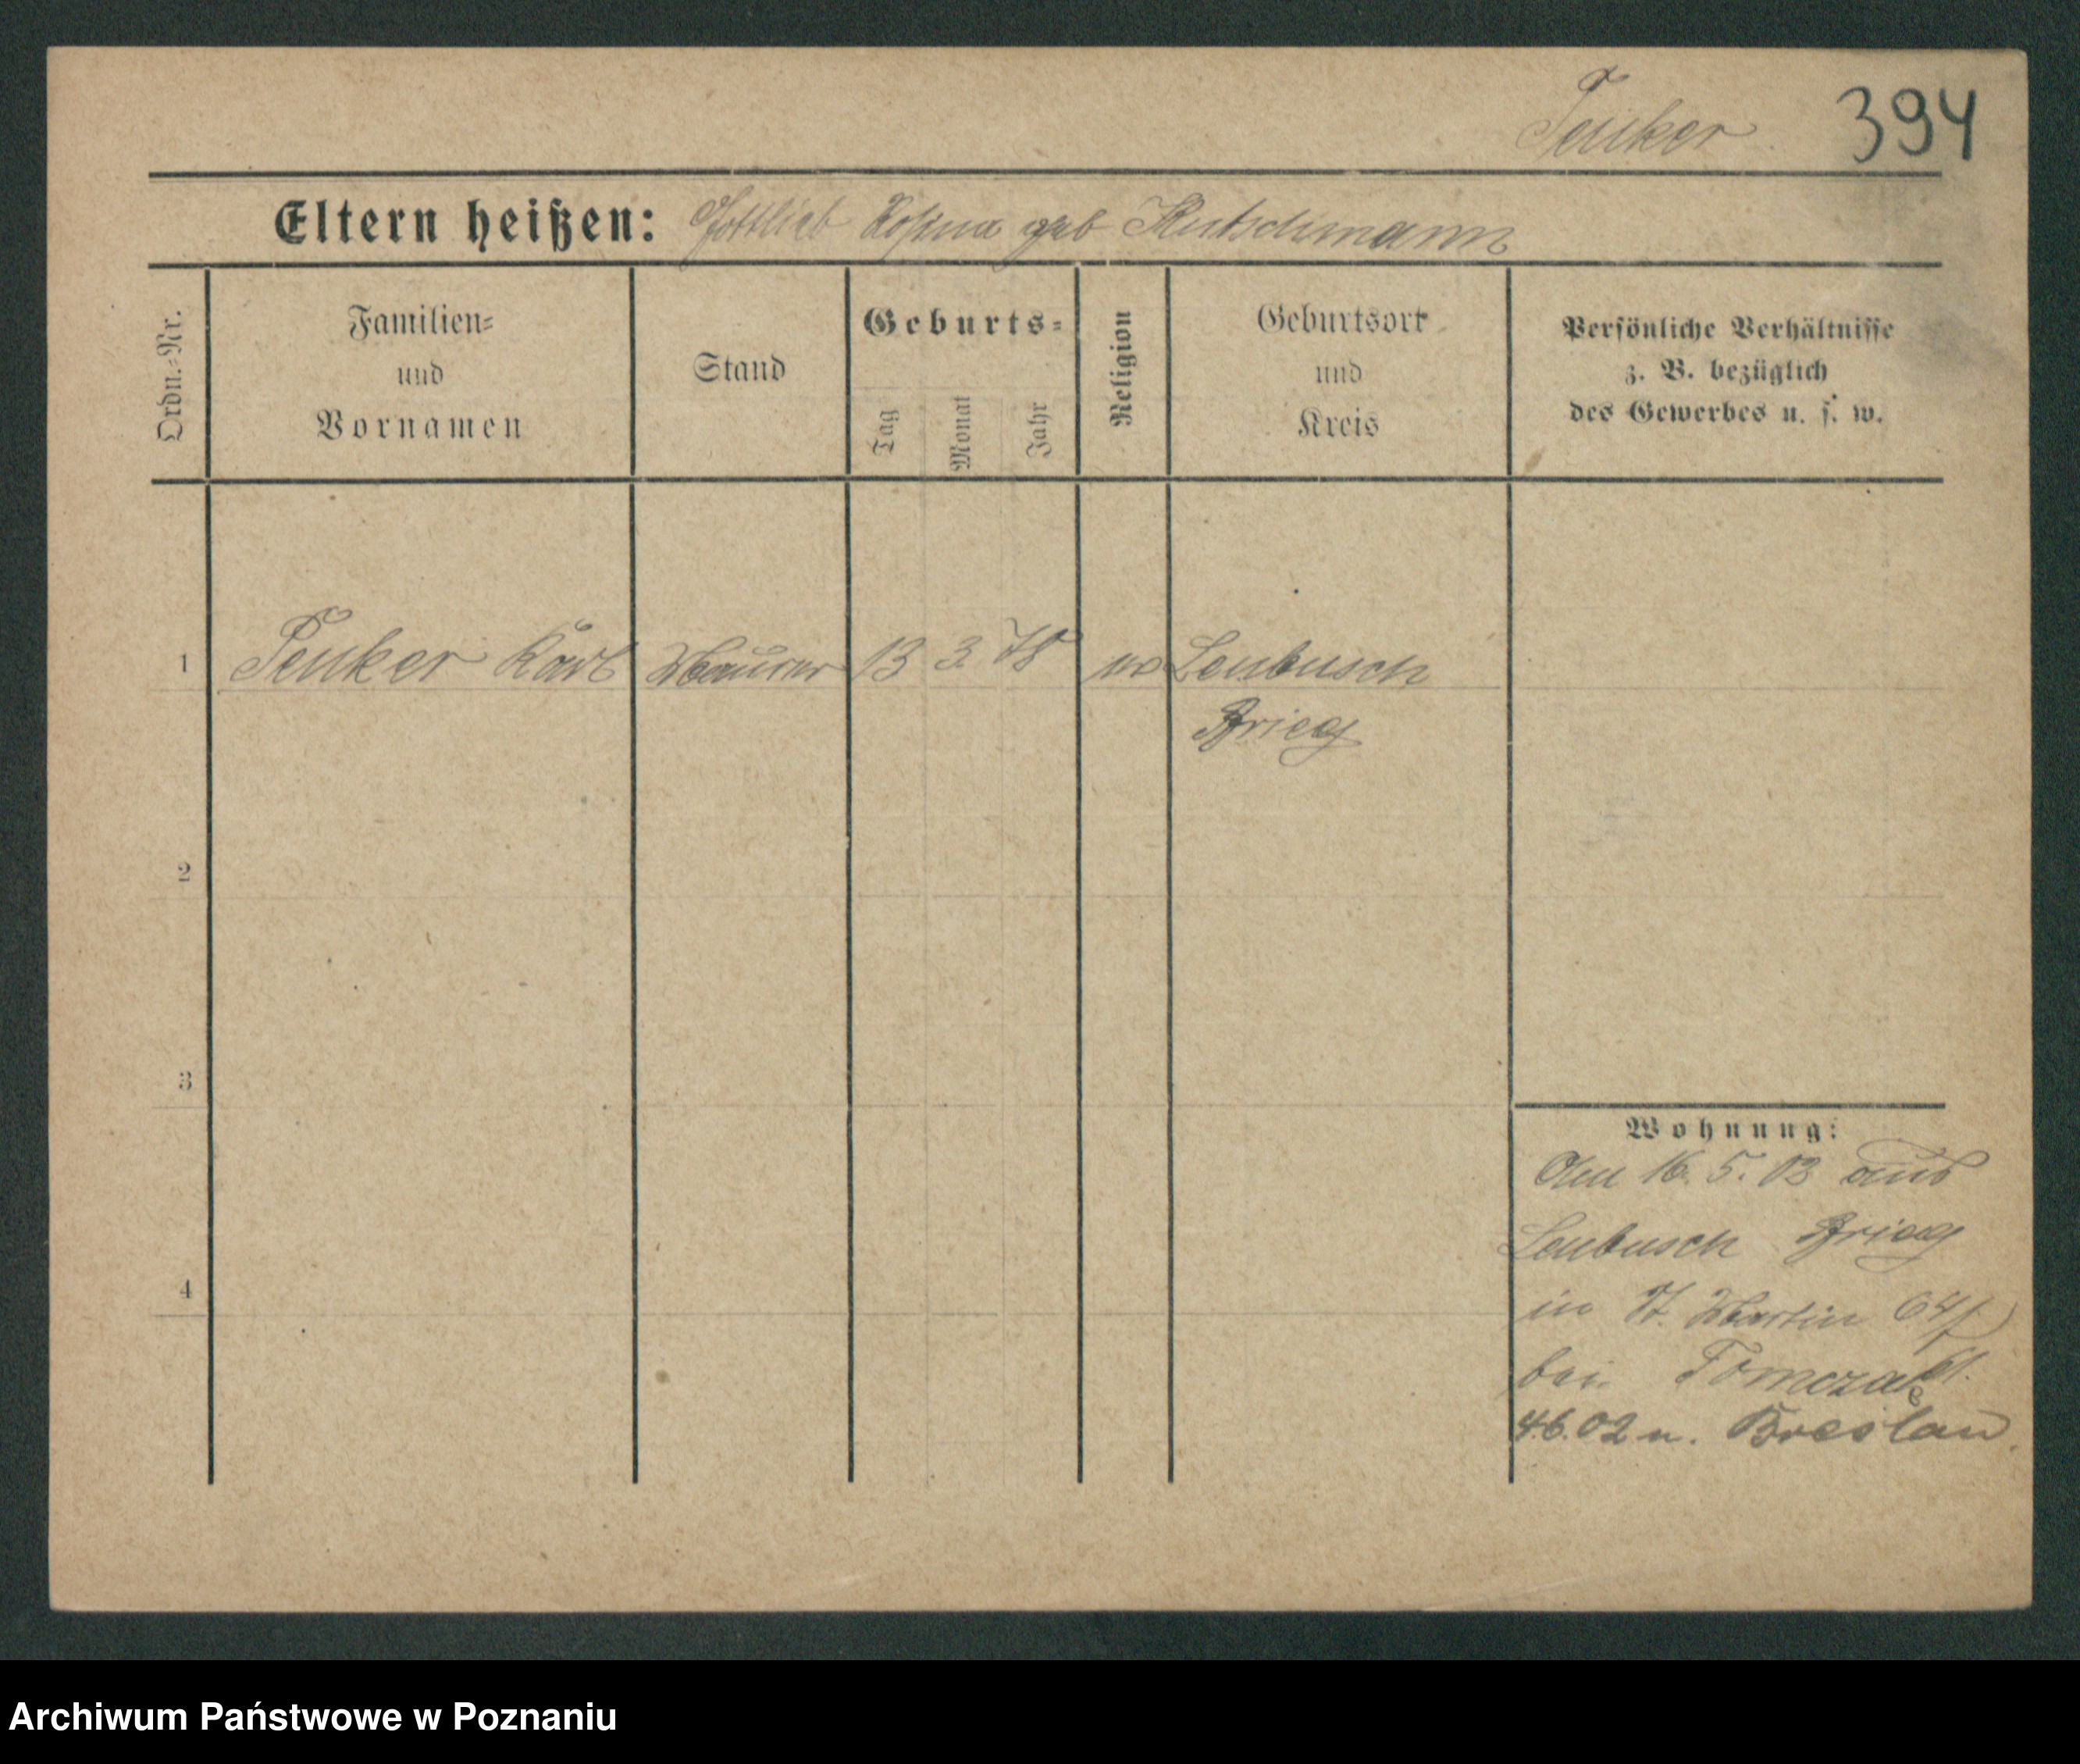 Peuker 394
Eltern heißen: Gottlieb Rosina geb Kutschmann
Ordn.-Nr.
Familien-
und
Vornamen
Stand
Geburts-
Tag
Monat
Jahr
Religion
Geburtsort
und
Kreis
Persönliche Verhältnisse
z. B. bezüglich
des Gewerbes u. s. w.
1 Peuker Karl Maurer 13 3. 78 Leubusch
Brieg
2
3
4
Wohnung:
Am 16. 5. 03 aus
Leubusch Brieg
in St. Martin 64
bei Tomczak
4.6.02 n. Breslau.
Archiwum Państwowe w Poznaniu